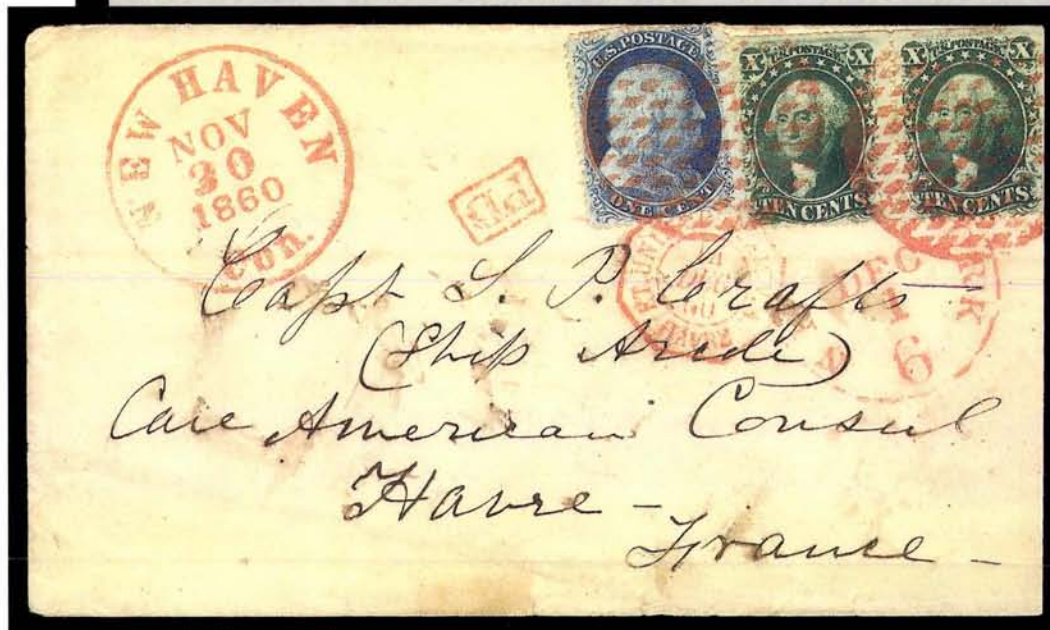 NEW HAVEN
NOV
30
1860
Con.
U.S. POSTAGE
ONE CENT
X U.S. POSTAGE X
TEN CENTS
X U.S. POSTAGE X
TEN CENTS
PD
DEC
6
Capt S. P. Crafts
(Ship
Care American Consul
Havre -
France -